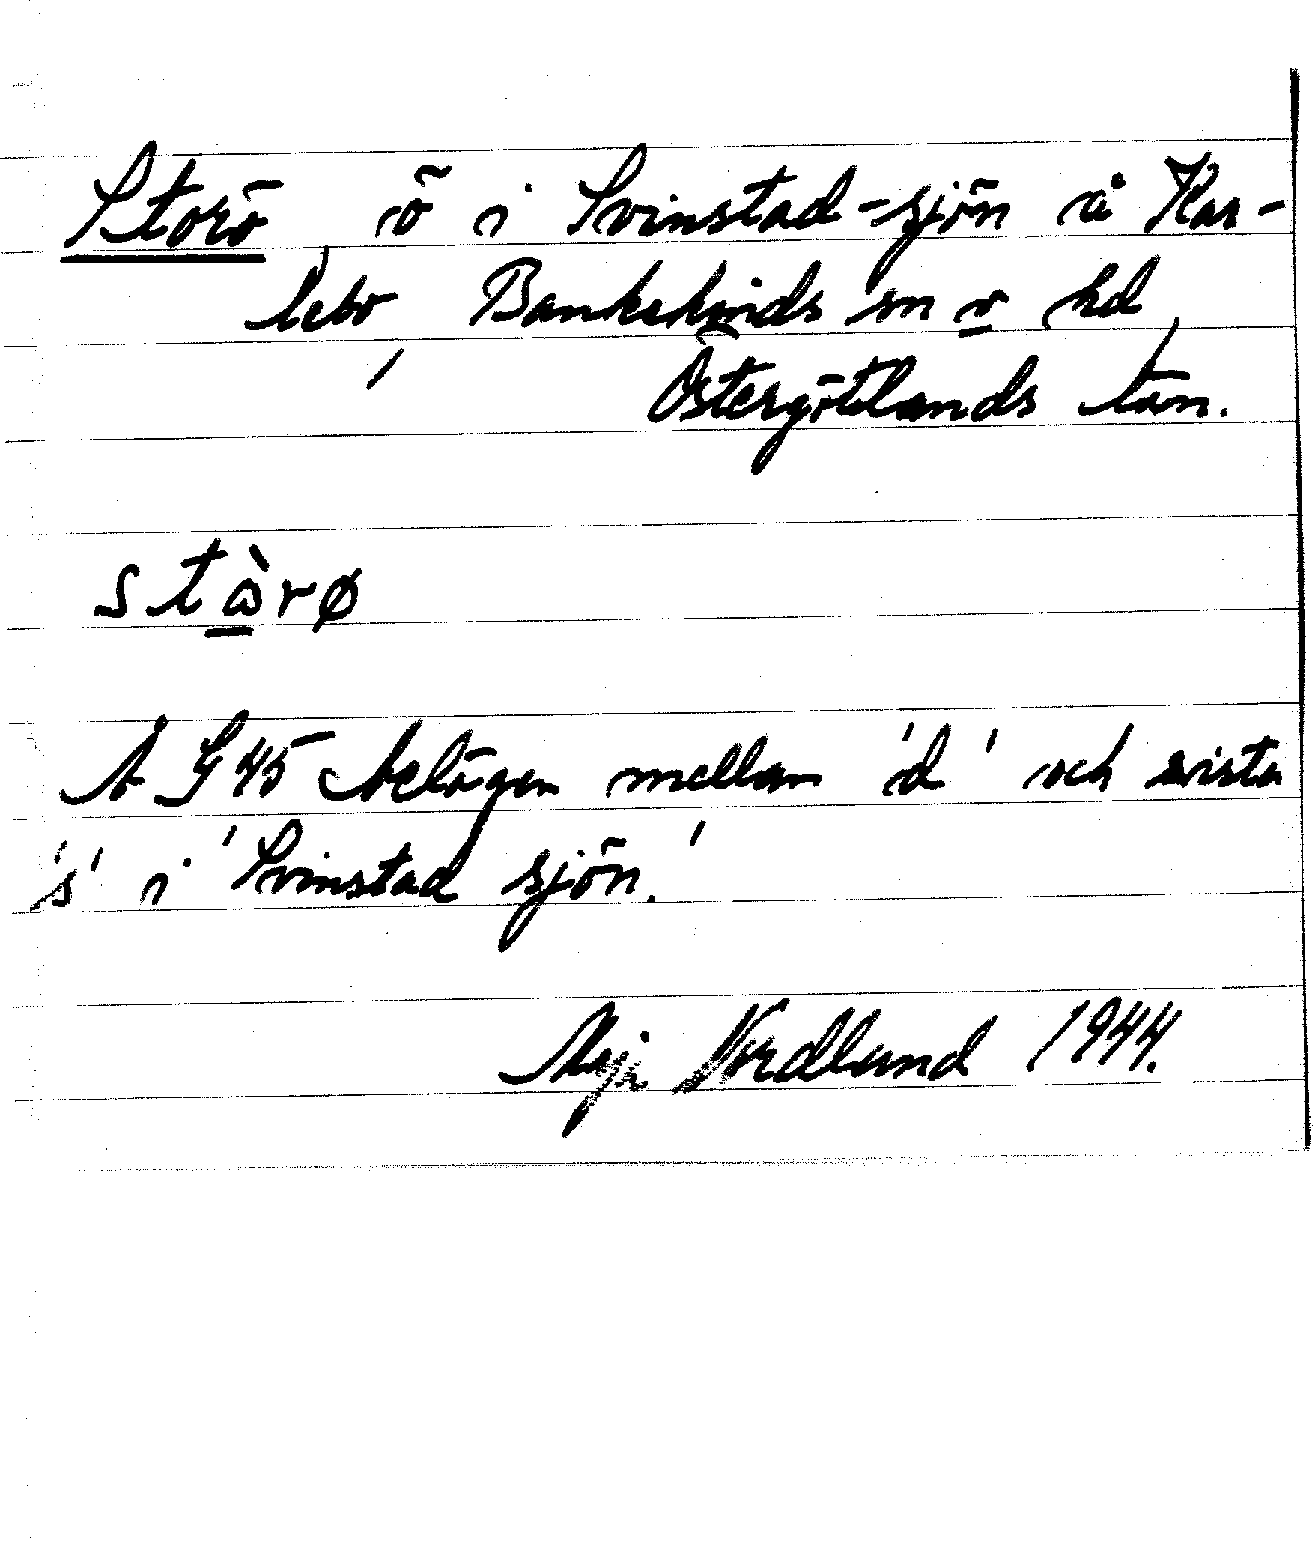 Storö, ö i Svinstad-sjön å Kar-
lebo, Bankekinds sn o hd
Östergötlands län.
stòrø
Å G 45 belägen mellan 'd' och sista
's' i 'Svinstad sjön.'
Maja Nordlund 1944.